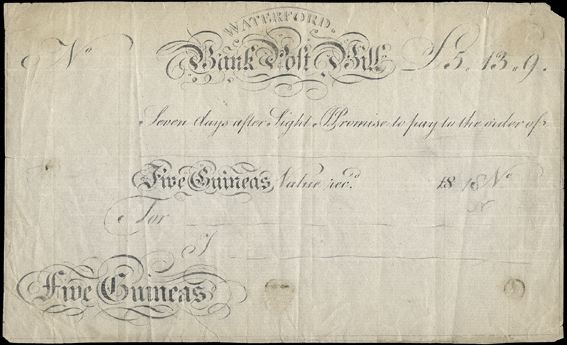 WATERFORD.
No Bank Post Bill £5.13.9.
Seven days after Sight I Promise to pay to the order of
Five Guineas Value rec.d 18
For
Five Guineas